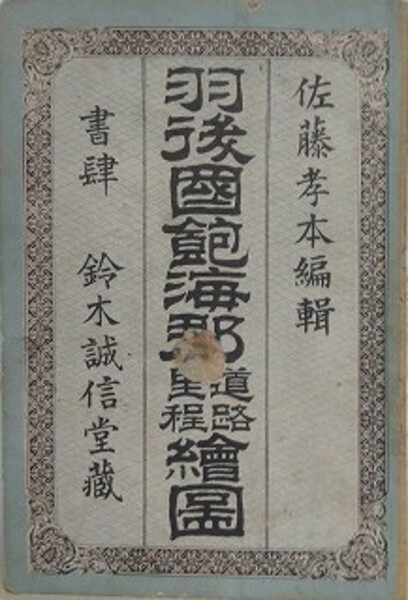 佐藤孝本編輯
羽後國飽海郡道路里程繪圖
書肆 鈴木誠信堂藏